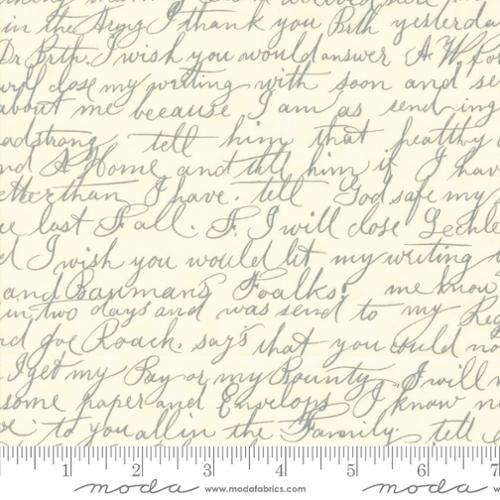 in the Army I thank you Brth yesterda
Dr Brth. I wish you would answer A W. Fo
will close my writing with soon and se
about me because I am as sending
adstrong tell him that healthy
nd A Home and tell him if I hav
etter than I have. tell God safe my
ue last Fall. F. I will close Lechle
d I wish you would let my writing
and Baumans Foalks, me know
in, two days and was send to my Reg
nd Joe Roach. says that you could no
I get my Pay or my Bounty I will
some paper and Envelops I know
to you all in the Family. tell
1 2 3 4 5 6 7
moda www.modafabrics.com moda www.modafabrics.com moda www.m